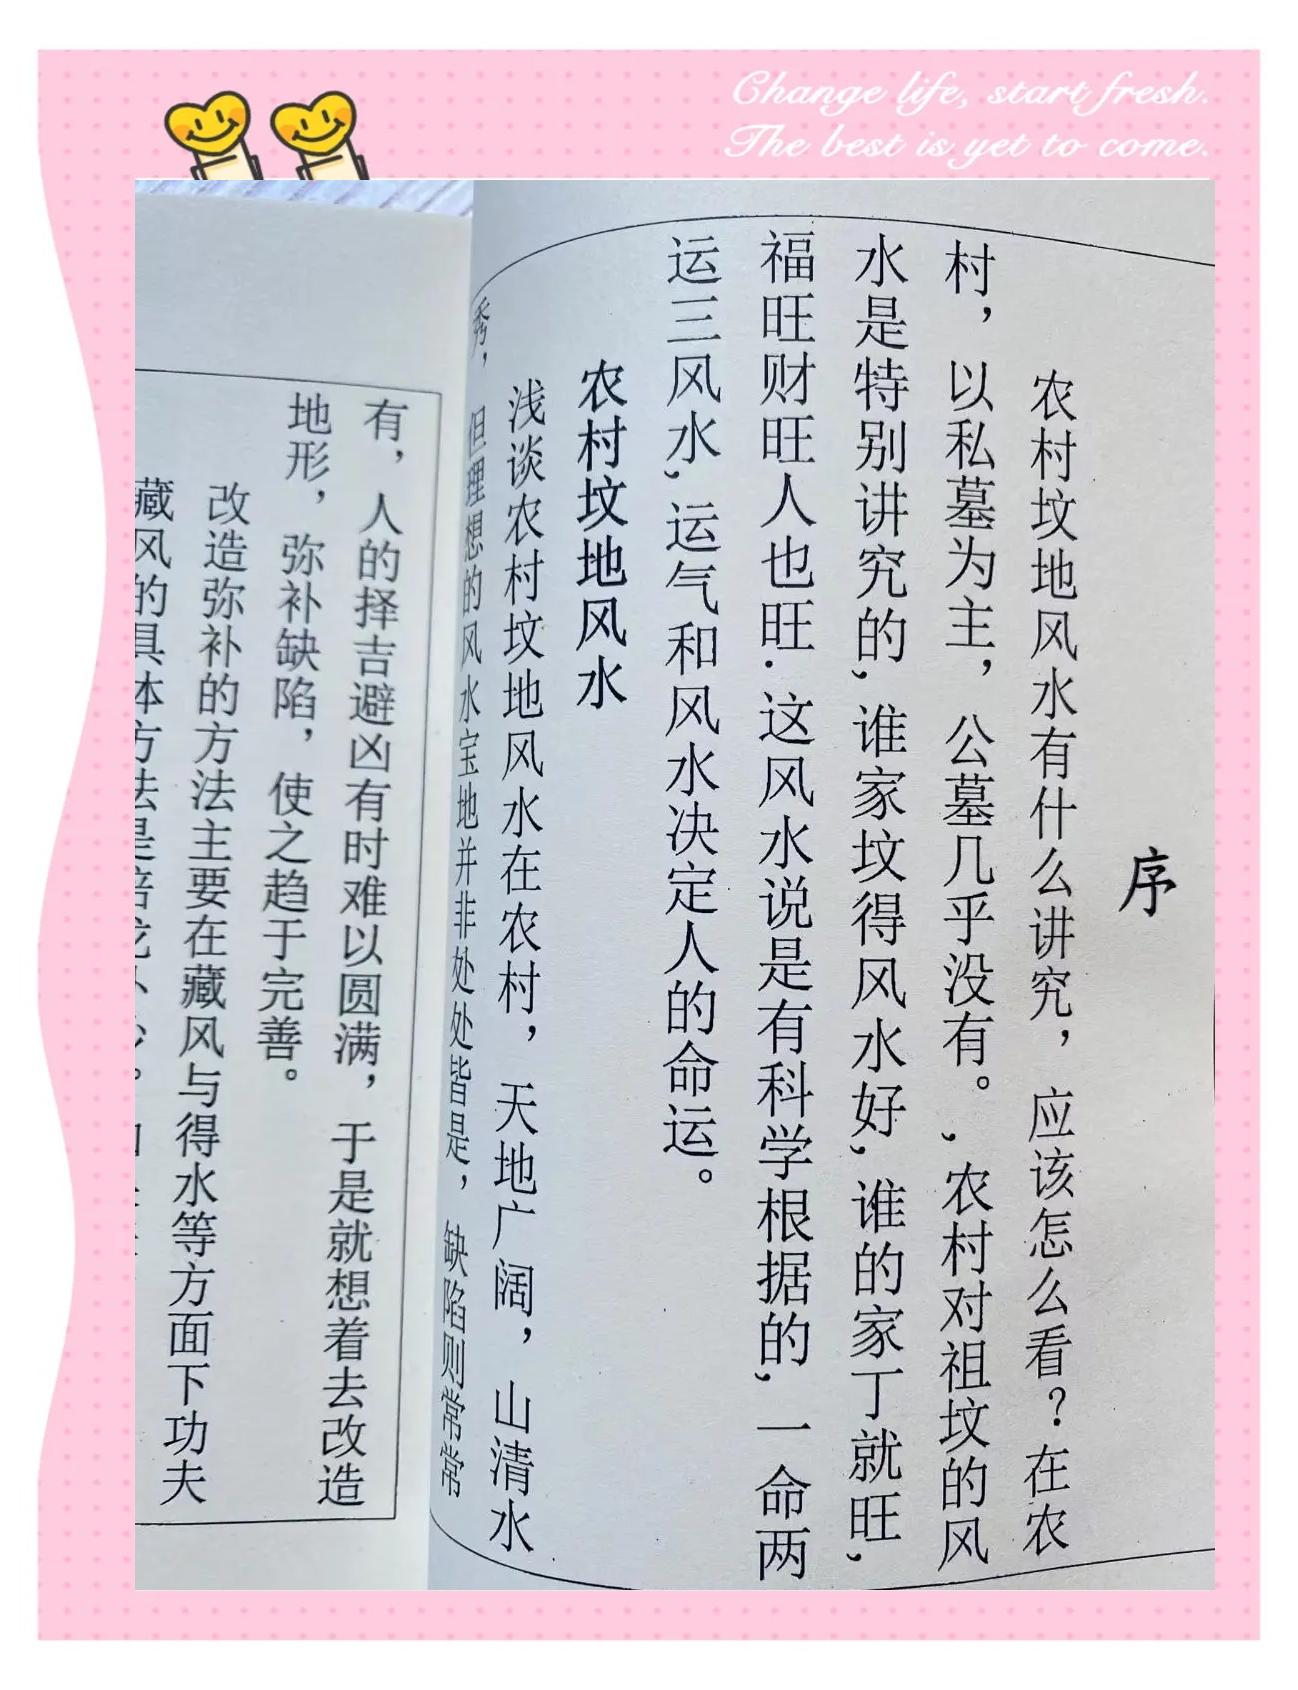 Change life, start fresh.
The best is yet to come.
序
农村坟地风水有什么讲究，应该怎么看？在农
村，以私墓为主，公墓几乎没有。，农村对祖坟的风
水是特别讲究的，谁家坟得风水好，谁的家丁就旺，
福旺财旺人也旺.这风水说是有科学根据的，一命两
运三风水，运气和风水决定人的命运。
农村坟地风水
浅谈农村坟地风水在农村，天地广阔，山清水
秀，但理想的风水宝地并非处处皆是，缺陷则常常
有，人的择吉避凶有时难以圆满，于是就想着去改造
地形，弥补缺陷，使之趋于完善。
改造弥补的方法主要在藏风与得水等方面下功夫
藏风的具体方法是